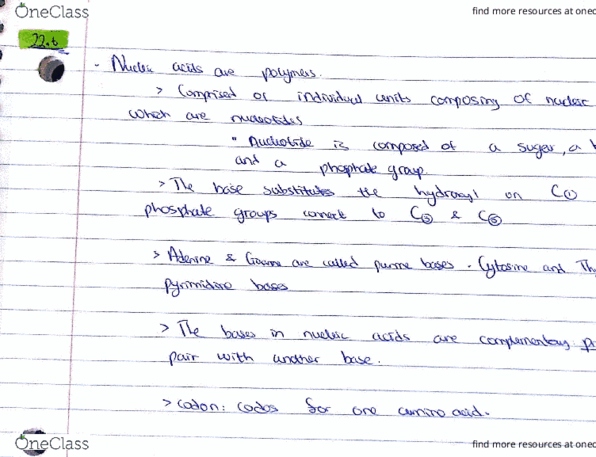 OneClass
find more resources at onec
22.6
- Nucleic acids are polymers.
> Comprised of individual units composing of nucleic
which are nucleotides
" Nucleotide is composed of a suger, a b
and a phosphate group
> The base substitutes the hydroxyl on C①
phosphate groups connect to C③ & C⑤
> Adenine & Guanine are called purine bases. Cytosine and Thy
Pyrimidine bases
> The bases in nucleic acids are complementary
pair with another base.
> codon: codes for one amino acid.
OneClass
find more resources at onec